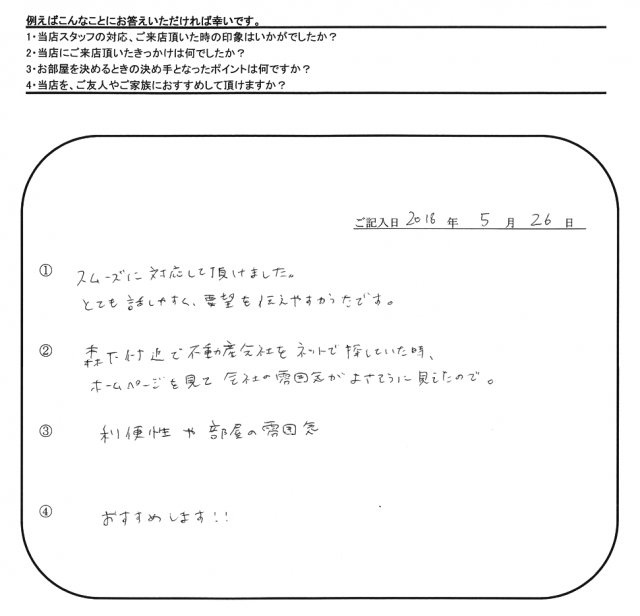 例えばこんなことにお答えいただければ幸いです。
1・当店スタッフの対応、ご来店頂いた時の印象はいかがでしたか?
2・当店にご来店頂いたきっかけは何でしたか?
3・お部屋を決めるときの決め手となったポイントは何ですか?
4・当店を、ご友人やご家族におすすめして頂けますか?
ご記入日 2018 年 5 月 26 日
① スムーズに対応して頂けました。
とても話しやすく、要望を伝えやすかったです。
② 森下付近で不動産会社をネットで探していた時、
ホームページを見て会社の雰囲気がよさそうに見えたので。
③ 利便性や部屋の雰囲気
④ おすすめします!!